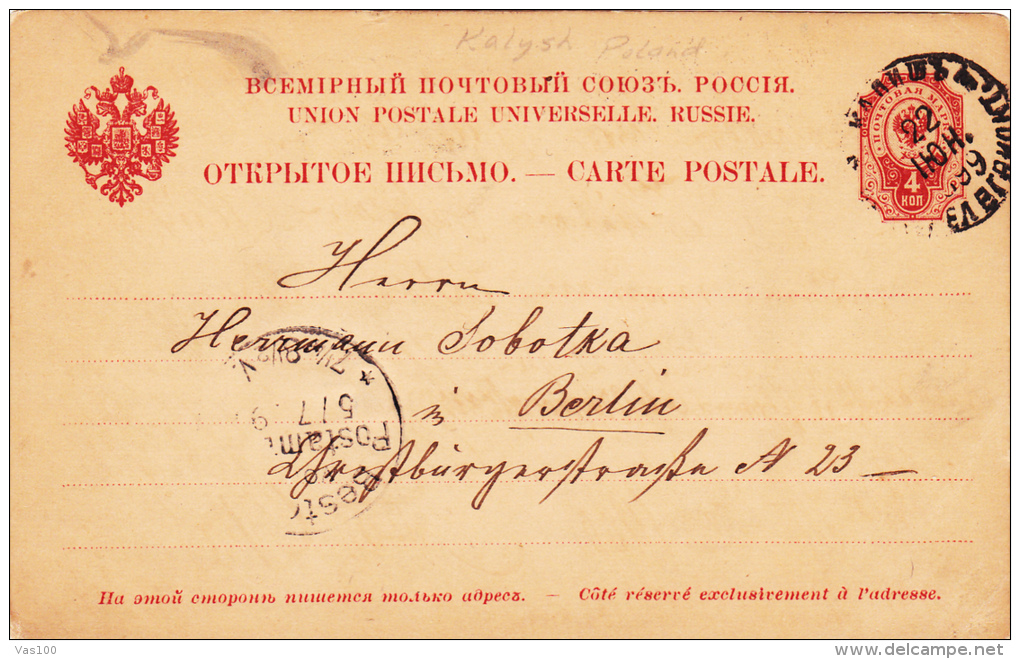 Kalysh Poland
ВСЕМІРНЫЙ ПОЧТОВЫЙ СОЮЗЪ. РОССІЯ.
UNION POSTALE UNIVERSELLE. RUSSIE.
ОТКРЫТОЕ ПИСЬМО. — CARTE POSTALE.
КАЛИШЪ
ПОЧТОВАЯ МАРКА
22
ІЮН.
99
4
КОП
Herrn
Herrmann Sobotka
in Berlin
Christbürgerstraße N 23
5/7 9
Postam
На этой сторонѣ пишется только адресъ. — Côté réservé exclusivement à l'adresse.
Vas100
delcampe.net